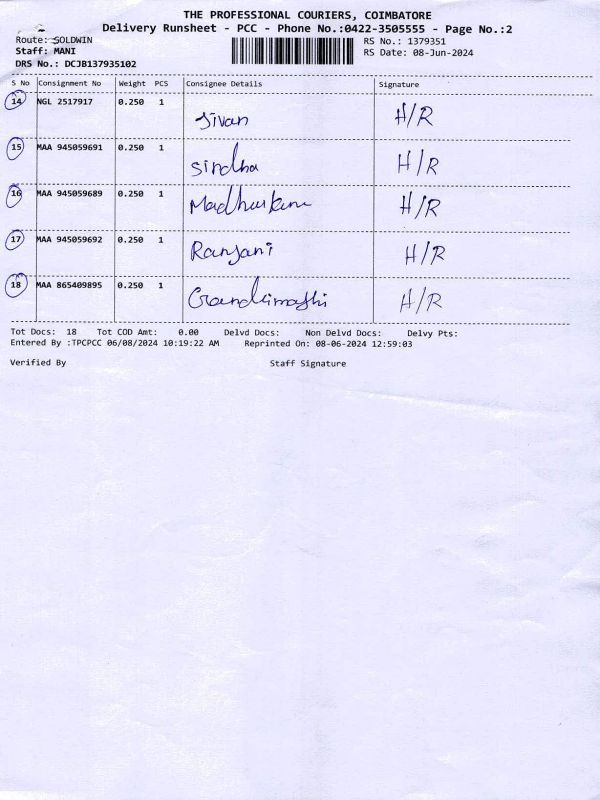 THE PROFESSIONAL COURIERS, COIMBATORE
Delivery Runsheet - PCC - Phone No.:0422-3505555 - Page No.:2
Route: GOLDWIN
RS No.: 1379351
Staff: MANI
RS Date: 08-Jun-2024
DRS No.: DCJB137935102
S No Consignment No Weight PCS Consignee Details Signature
14 NGL 2517917 0.250 1 Sivan H/R
15 MAA 945059691 0.250 1 Sindha H/R
16 MAA 945059689 0.250 1 H/R
17 MAA 945059692 0.250 1 Ranjani H/R
18 MAA 865409895 0.250 1 H/R
Tot Docs: 18 Tot COD Amt: 0.00 Delvd Docs: Non Delvd Docs: Delvy Pts:
Entered By :TPCPCC 06/08/2024 10:19:22 AM Reprinted On: 08-06-2024 12:59:03
Verified By Staff Signature